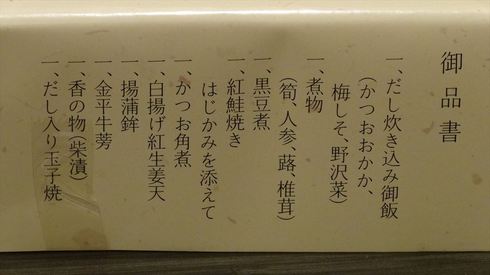 御品書
一、だし炊き込み御飯
(かつおおかか、
梅しそ、野沢菜)
一、煮物
(筍、人参、蕗、椎茸)
一、黒豆煮
一、紅鮭焼き
はじかみを添えて
一、かつお角煮
一、白揚げ紅生姜天
一、揚蒲鉾
一、金平牛蒡
一、香の物(柴漬)
一、だし入り玉子焼